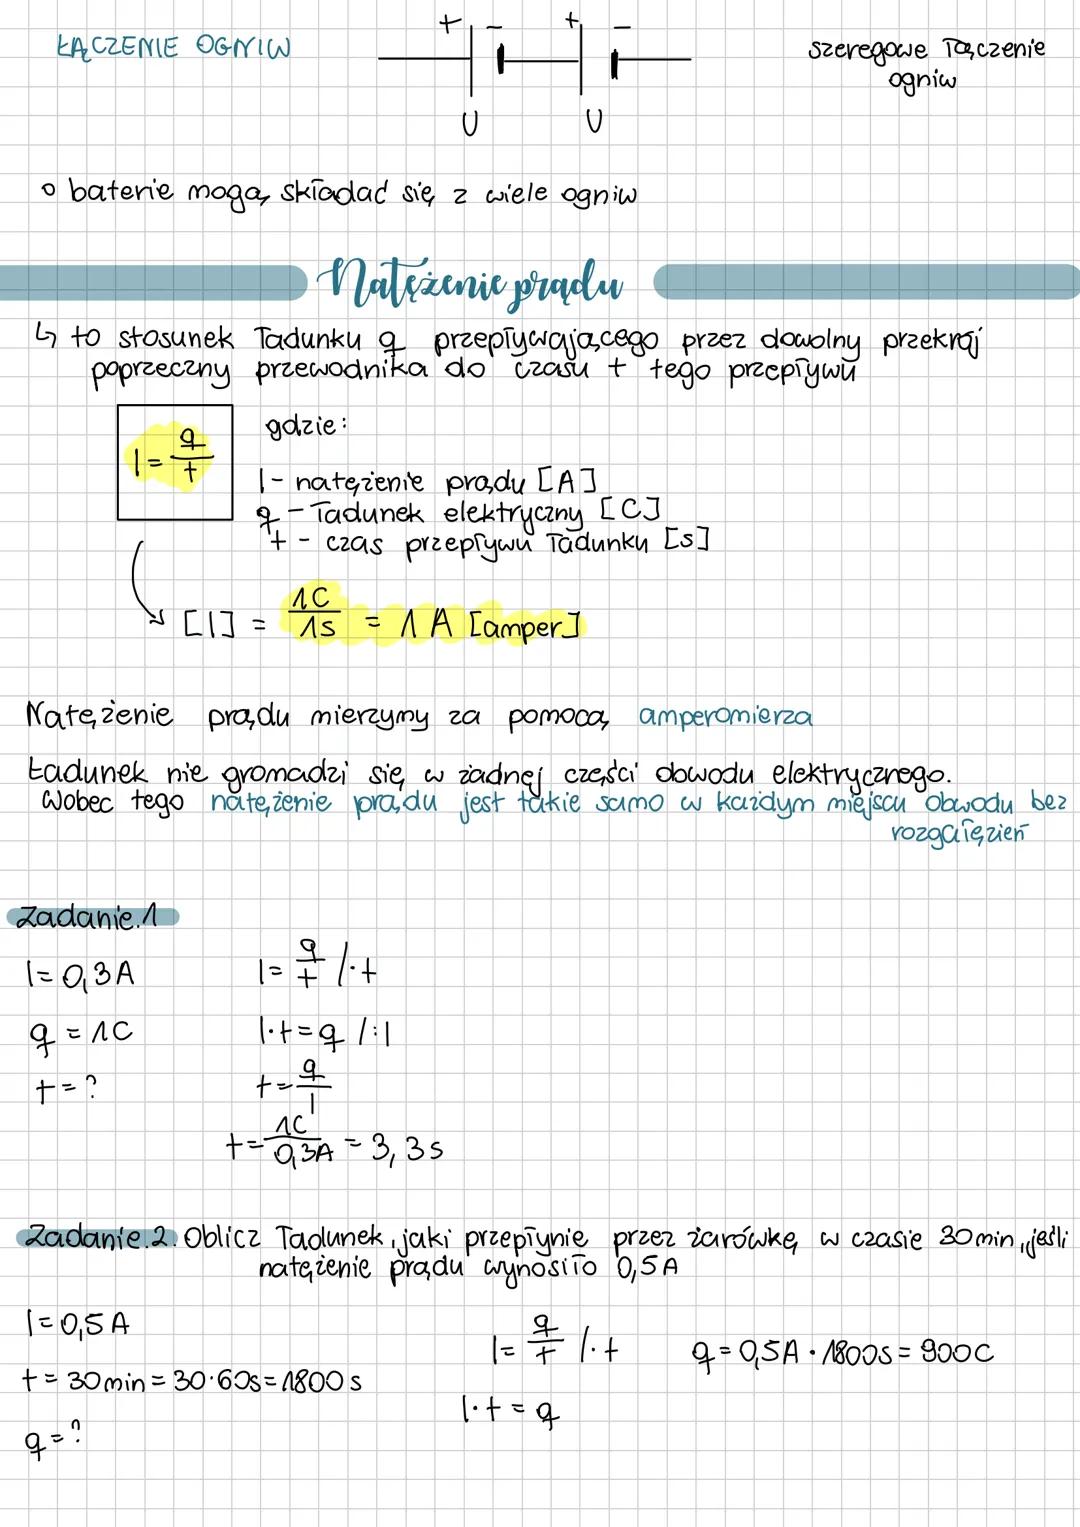 ŁĄCZENIE OGNIW
+ - + -
U U
szeregowe łączenie
ogniw
o baterie mogą składać się z wiele ogniw
Natężenie prądu
↳ to stosunek ładunku q przepływającego przez dowolny przekrój
poprzeczny przewodnika do czasu t tego przepływu
I = q/t
gdzie:
I - natężenie prądu [A]
q - ładunek elektryczny [C]
t - czas przepływu ładunku [s]
[I] = 1C/1s = 1 A [amper]
Natężenie prądu mierzymy za pomocą amperomierza
Ładunek nie gromadzi się w żadnej części obwodu elektrycznego.
Wobec tego natężenie prądu jest takie samo w każdym miejscu obwodu bez
rozgałęzień
Zadanie.1
I = 0,3A
q = 1C
t = ?
I = q/t /·t
I·t = q /:I
t = q/I
t = 1C/0,3A = 3,3s
Zadanie.2. Oblicz ładunek, jaki przepłynie przez żarówkę w czasie 30min, jeśli
natężenie prądu wynosiło 0,5A
I = 0,5A
t = 30min = 30·60s = 1800s
q = ?
I = q/t /·t
I·t = q
q = 0,5A · 1800s = 900C